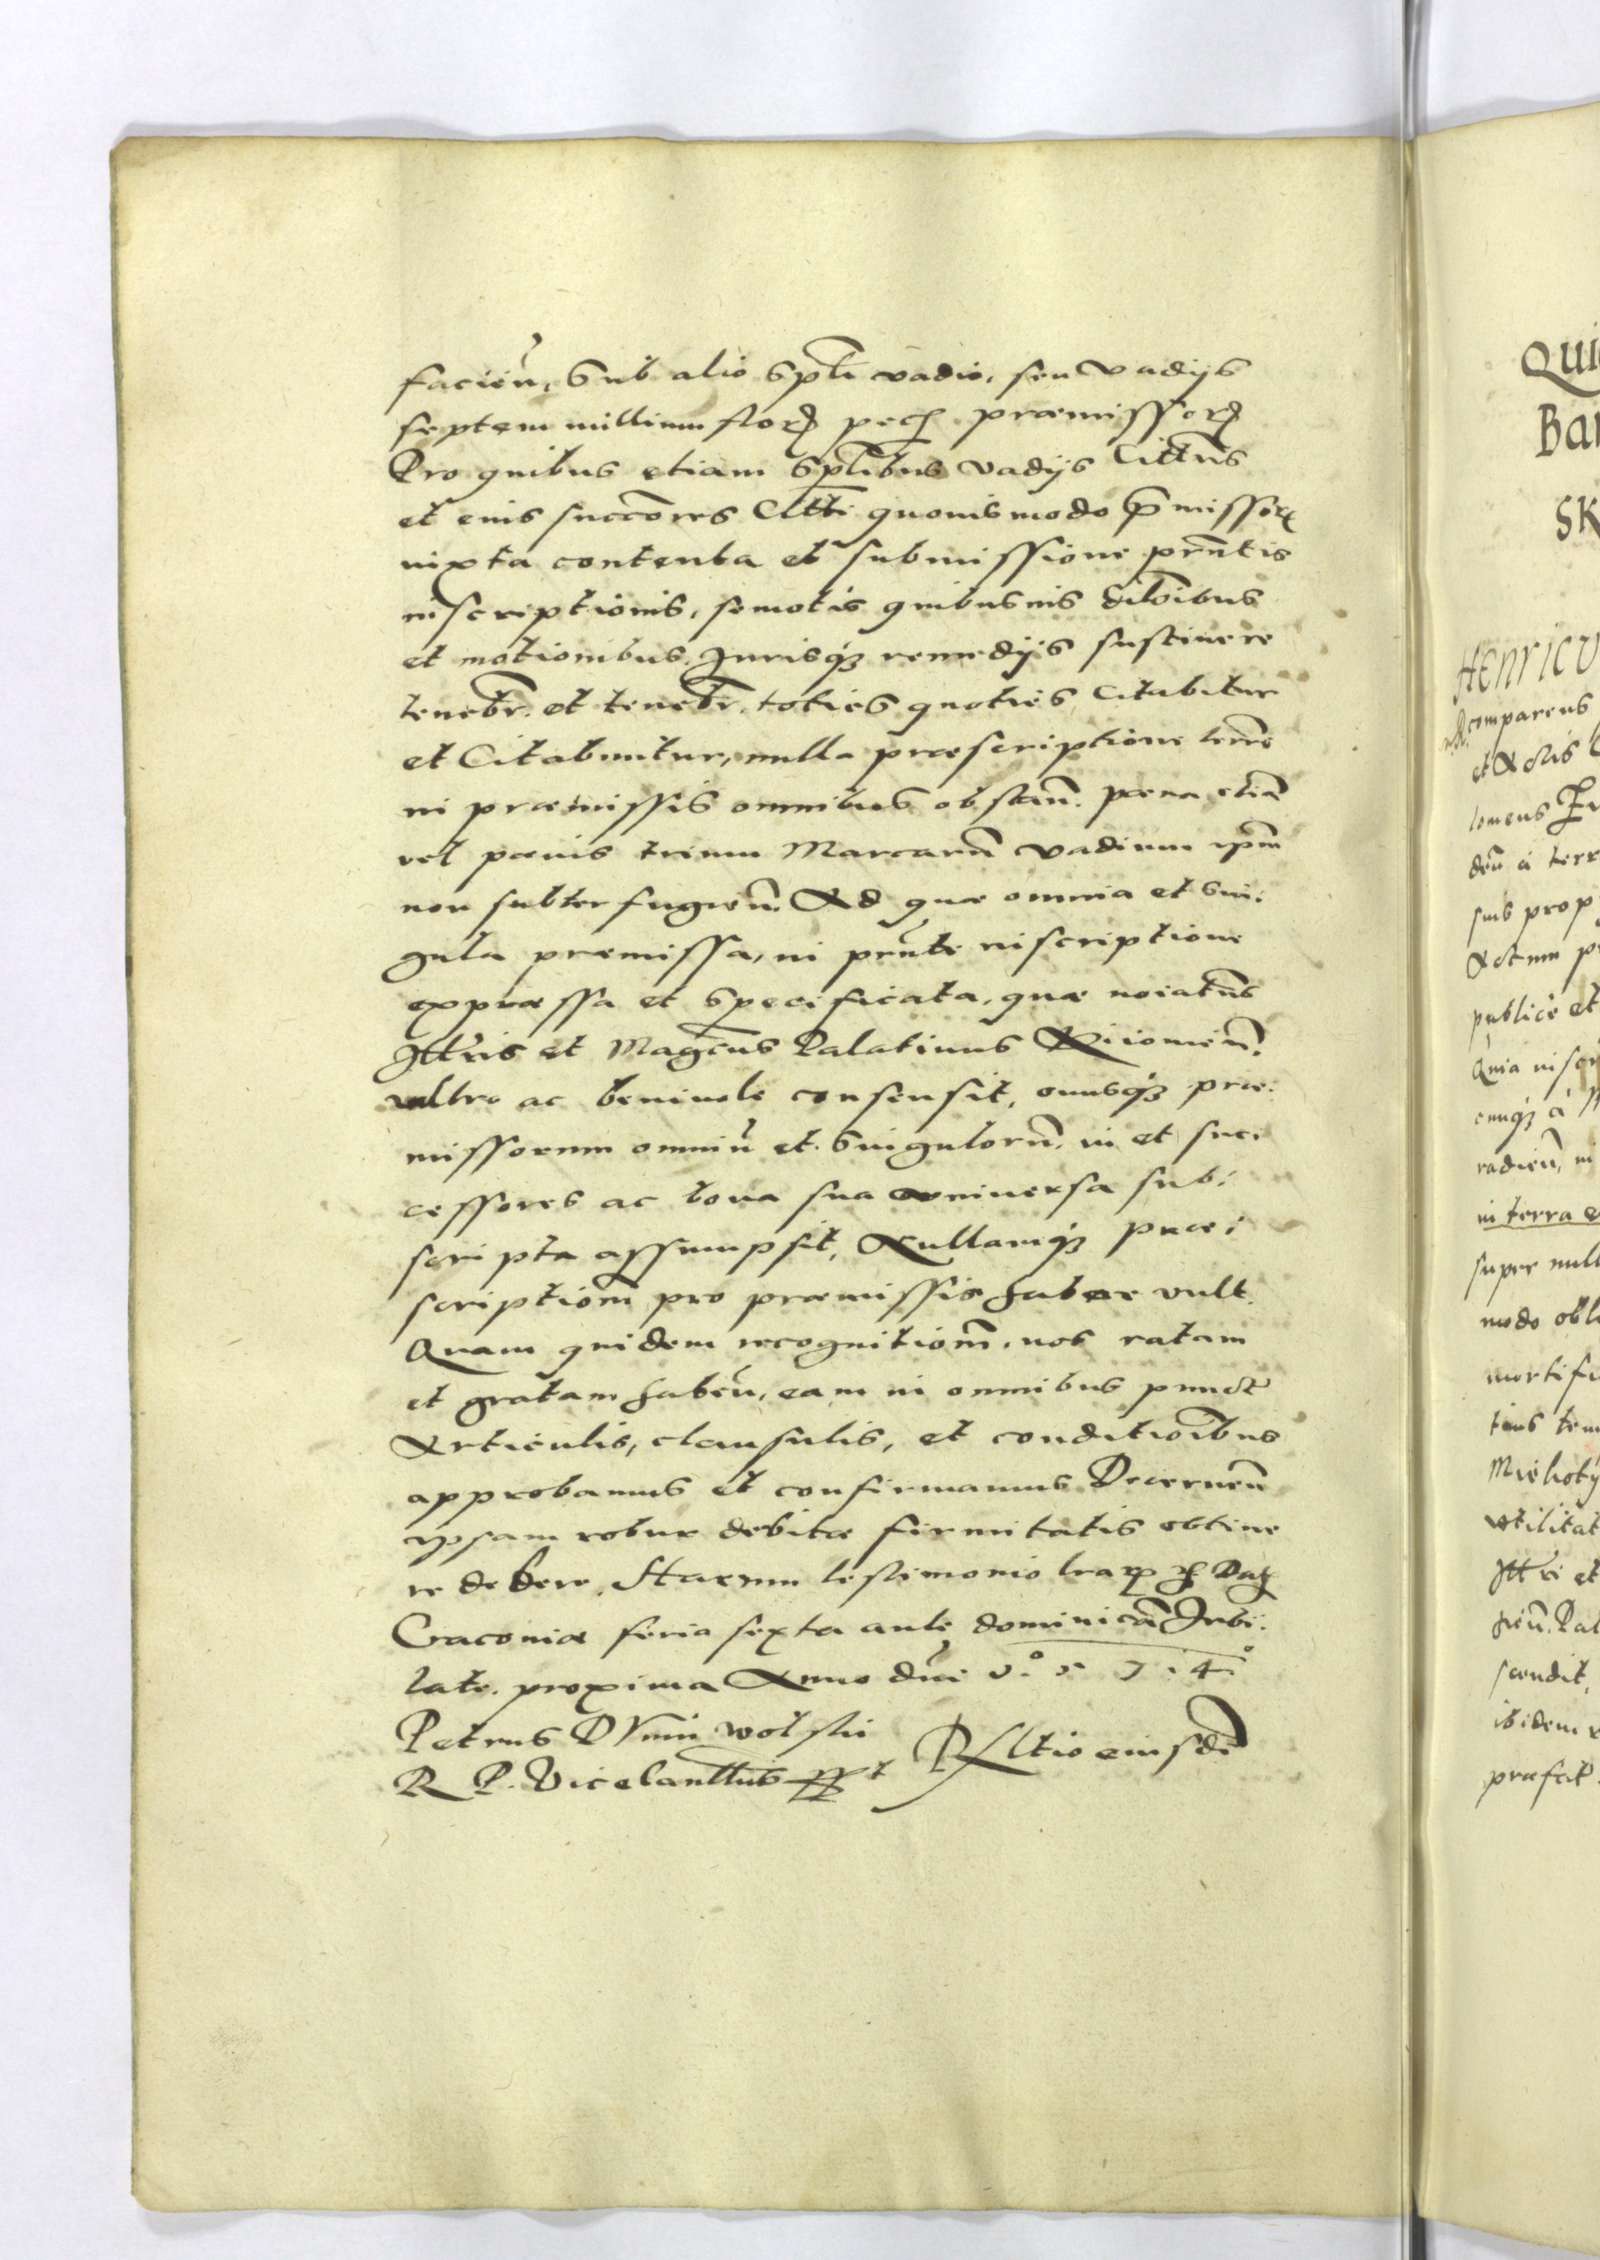 facien̄, Sub alio Spl̄i vadio, seu Vadijs
septem millium flor pec̄ præmissor
Pro quibus etiam Spl̄ibus vadijs Citt̄us
et eius succōres Citt̄i quouis modo p̄missor
iuxta contenta et submissione prn̄tis
inscriptionis, semotis quibusuis dil̄oibus
et motionibus Jurisq3 remedijs sustinere
teneb̄r. et teneb̄r. toties quoties Citabitur
et Citabuntur, nulla præscriptione terr̄e
in præmissis omnibus obstan̄. pœna etiā
vel pœnis trium Marcarū vadium ipm̄
non subterfugien̄. Ad quæ omnia et sin:
gula præmissa, in prn̄te inscriptione
expræssa et specificata, quæ noīat̄us
Ill̄ris et Magc̄us Palatinus Kiiouien̄.
ultro ac beniuole consensit, onusq3 præ:
missorum omniū et singulorū, in et suc:
cessores ac bona sua vniuersa sub:
scripta assumpsit, Nullamq3 præ:
scriptiom̄ pro præmissis habere vult.
Quam quidem recognitiom̄, nos ratam
et gratam haben̄, eam in omnibus punct
Articulis, clausulis, et conditiōibus
approbamus et confirmamus Decernen̄
ipsam robur debitæ firmitatis obtine
re debere, Harum testimonio lrār Dat
Cracouiæ feria sexta ante dominicā Jubi:
late proxima Anno dn̄i 1.5.7.4.
Petrus Dunin wolski
R P. Vicecanll̄rius sst Rl̄tio eiusdē
QUI
Ba
SK
HENRICV
comparens
et Actis
deū a terr
suis prop
Actum p
publicè et
Quia inscr
cunq3 à
radien̄, in
in terra
super null
modo obl
mortif
tius tem
vtilitat
Ill̄ri et
scendit,
ibidem
præfat